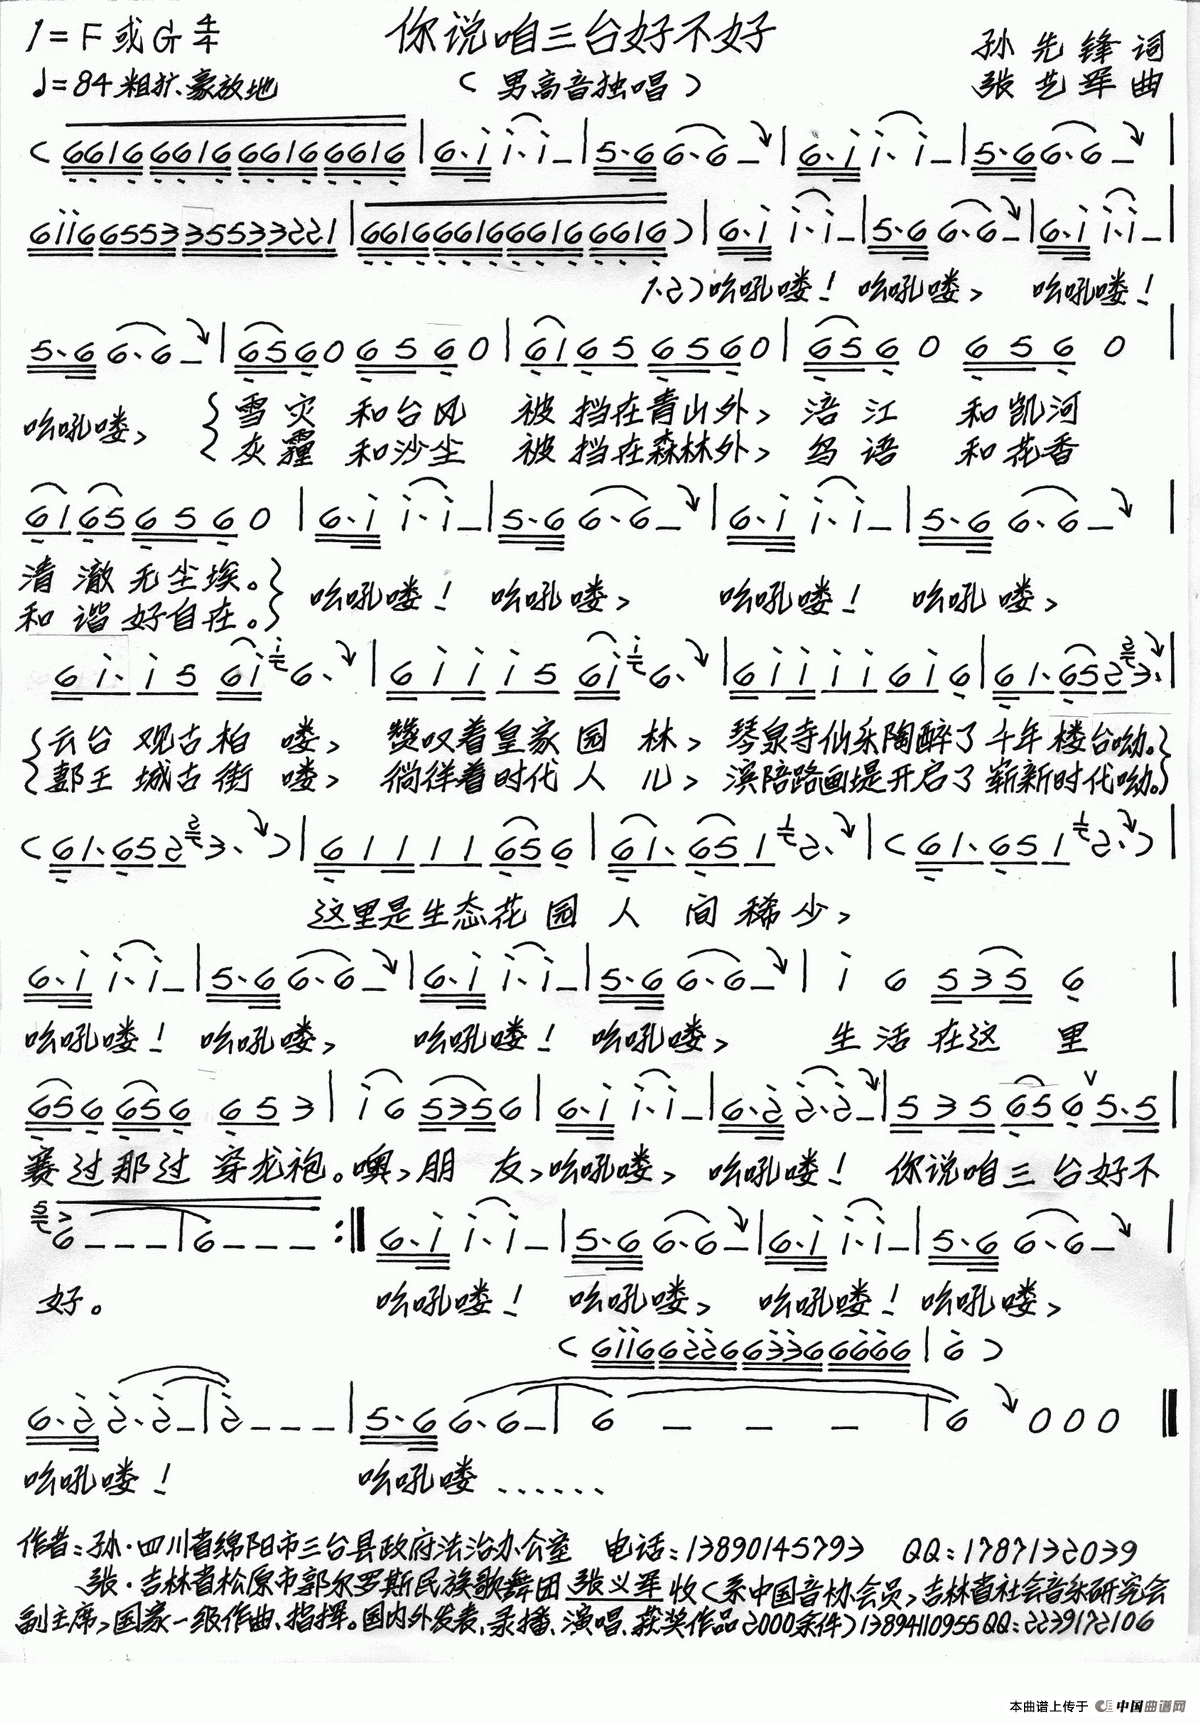 1=F或G 4/4
你说咱三台好不好
孙先锋 词
♩=84 粗犷、豪放地
(男高音独唱)
张艺军 曲
1.2)吆吼喽! 吆吼喽, 吆吼喽!
吆吼喽,
雪灾 和台风 被挡在青山外, 涪江 和凯河
灰霾 和沙尘 被挡在森林外, 鸟语 和花香
清澈无尘埃。
和谐好自在。
吆吼喽! 吆吼喽, 吆吼喽! 吆吼喽,
云台观古柏喽, 赞叹着皇家园林, 琴泉寺仙乐陶醉了千年楼台呦。
郪王城古街喽, 徜徉着时代人儿, 滨陪路画堤开启了崭新时代呦。
这里是生态花园人间稀少,
吆吼喽! 吆吼喽, 吆吼喽! 吆吼喽, 生活在这里
赛过那过穿龙袍。噢,朋友,吆吼喽, 吆吼喽! 你说咱三台好不
好。 吆吼喽! 吆吼喽, 吆吼喽! 吆吼喽,
吆吼喽! 吆吼喽......
作者:孙·四川省绵阳市三台县政府法治办公室 电话:13890145793 QQ:1787132039
张·吉林省松原市郭尔罗斯民族歌舞团 张义军 收(系中国音协会员,吉林省社会音乐研究会
副主席,国家一级作曲、指挥。国内外发表,录播、演唱、获奖作品2000余件)13894110955QQ:2239172106
本曲谱上传于 中国曲谱网